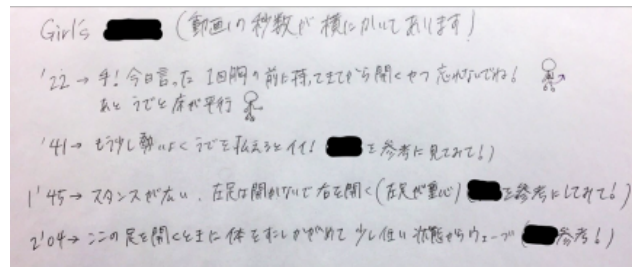 Girl's (動画の秒数が横にかいてあります)
'22→手!今日言った1回胸の前に持ってきてから開くやつ忘れないでね!
あとうでと床が平行
'41→もう少し勢いよくうでを払えるとイイ!を参考に見てみて!)
1'45→スタンスが広い、左足は開かないで右を開く(左足が重心)を参考にしてみて!)
2'04→ここの足を開くときに体をすこしかがめて少し低い状態からウェーブ(参考!)